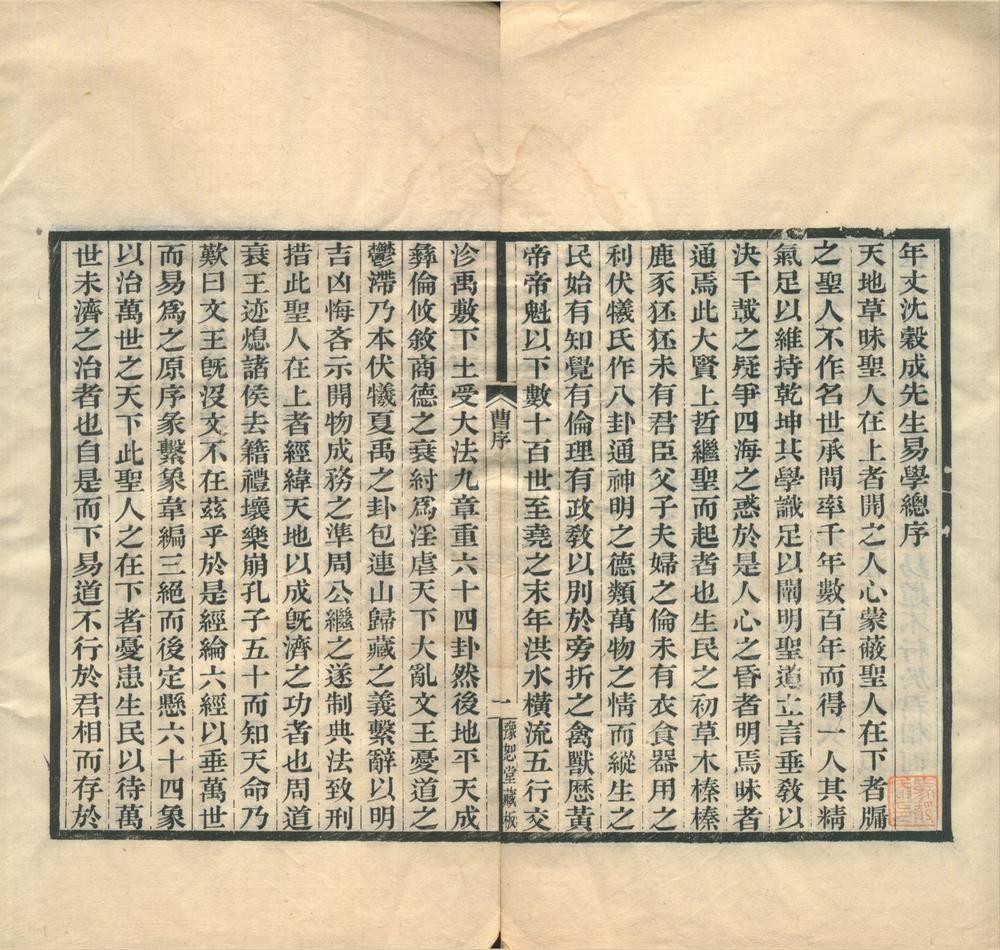 年丈沈穀成先生易學總序
天地草昧聖人在上者開之人心蒙蔽聖人在下者牖
之聖人不作名世承間率千年數百年而得一人其精
氣足以維持乾坤其學識足以闡明聖道立言垂敎以
決千載之疑爭四海之惑於是人心之昏者明焉昧者
通焉此大賢上哲繼聖而起者也生民之初草木榛榛
鹿豕狉狉未有君臣父子夫婦之倫未有衣食器用之
利伏犧氏作八卦通神明之德類萬物之情而縱生之
民始有知覺有倫理有政敎以別於旁折之禽獸歴黃
帝帝魁以下數十百世至堯之末年洪水橫流五行交
曹序
一
豫恕堂藏板
沴禹敷下土受大法九章重六十四卦然後地平天成
彝倫攸敘商德之衰紂爲淫虐天下大亂文王憂道之
鬱滯乃本伏犧夏禹之卦包連山歸藏之義繫辭以明
吉凶悔吝示開物成務之準周公繼之遂制典法致刑
措此聖人在上者經緯天地以成旣濟之功者也周道
衰王迹熄諸侯去籍禮壞樂崩孔子五十而知天命乃
歎曰文王旣沒文不在茲乎於是經綸六經以垂萬世
而易爲之原序彖繫象韋編三絕而後定懸六十四象
以治萬世之天下此聖人之在下者憂患生民以待萬
世未濟之治者也自是而下易道不行於君相而存於